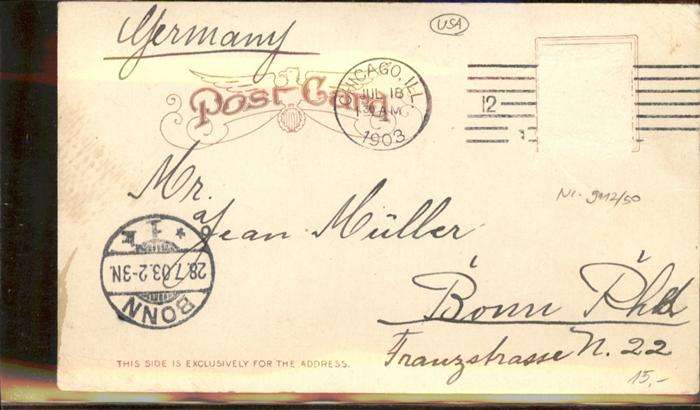 Germany
USA
Post Card
CHICAGO, ILL.
JUL 18
AM
1903
12
Mr.
Jean Müller
Nr. 9112/50
BONN
28.7.03.2-3N.
* 1
Bonn Rhld
Franzstrasse N. 22
THIS SIDE IS EXCLUSIVELY FOR THE ADDRESS.
15,-